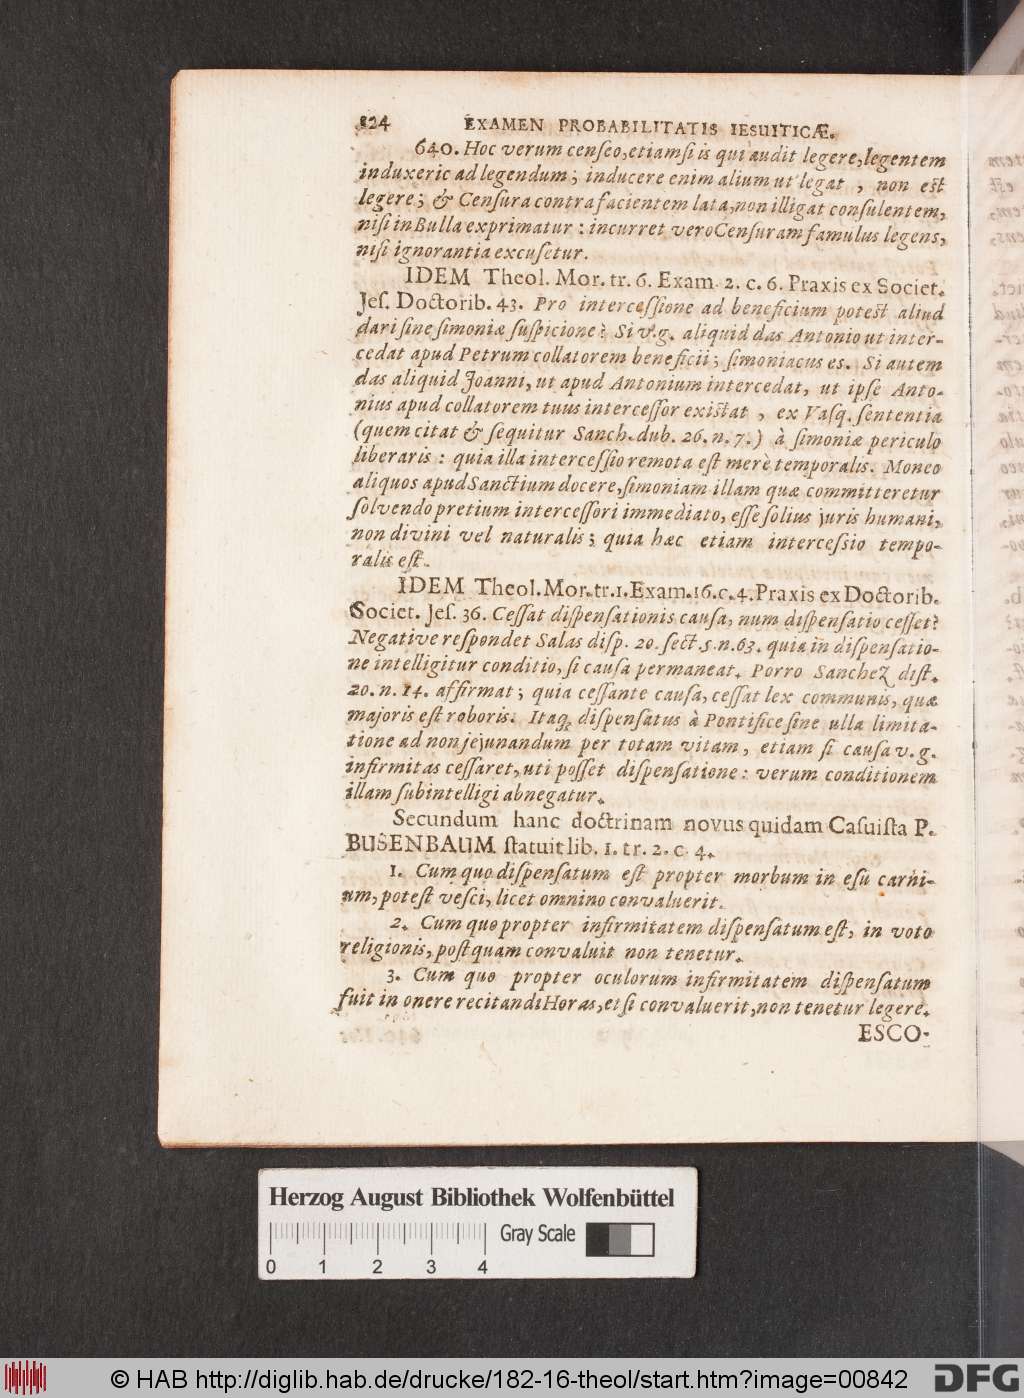 824 EXAMEN PROBABILITATIS IESUITICÆ.
640. Hoc verum cenſeo, etiamſi is qui audit legere, legentem
induxeric ad legendum; inducere enim alium ut legat , non eſt
legere; & Cenſura contra facientem lata, non illigat conſulentem,
niſi in Bulla exprimatur : incurret vero Cenſuram famulus legens,
niſi ignorantia excuſetur.
IDEM Theol. Mor. tr. 6. Exam. 2. c. 6. Praxis ex Societ.
Jeſ. Doctorib. 43. Pro interceſſione ad beneficium poteſt aliud
dari ſine ſimoniæ ſuſpicione? Si v.g. aliquid das Antonio ut inter-
cedat apud Petrum collatorem beneficii; ſimoniacus es. Si autem
das aliquid Joanni, ut apud Antonium intercedat, ut ipſe Anto-
nius apud collatorem tuus interceſſor exiſtat , ex Vaſq. ſententia
(quem citat & ſequitur Sanch. dub. 26. n. 7.) à ſimoniæ periculo
liberaris : quia illa interceſſio remota eſt merè temporalis. Moneo
aliquos apud Sanctium docere, ſimoniam illam quæ committeretur
ſolvendo pretium interceſſori immediato, eſſe ſolius juris humani,
non divini vel naturalis; quia hæc etiam interceſsio tempo-
ralis eſt.
IDEM Theol. Mor. tr. 1. Exam. 16. c. 4. Praxis ex Doctorib.
Societ. Jeſ. 36. Ceſſat diſpenſationis cauſa, num diſpenſatio ceſſet?
Negative reſpondet Salas diſp. 20. ſect. 5. n. 63. quia in diſpenſatio-
ne intelligitur conditio, ſi cauſa permaneat. Porro Sanchez diſt.
20. n. 14. affirmat; quia ceſſante cauſa, ceſſat lex communis, quæ
majoris eſt roboris. Itaq; diſpenſatus à Pontifice ſine ulla limita-
tione ad non jejunandum per totam vitam, etiam ſi cauſa v. g.
infirmitas ceſſaret, uti poſſet diſpenſatione : verum conditionem
illam ſubintelligi abnegatur.
Secundum hanc doctrinam novus quidam Caſuiſta P.
BUSENBAUM ſtatuit lib. 1. tr. 2. c. 4.
1. Cum quo diſpenſatum eſt propter morbum in eſu carni-
um, poteſt veſci, licet omnino convaluerit.
2. Cum quo propter infirmitatem diſpenſatum eſt, in voto
religionis, poſtquam convaluit non tenetur.
3. Cum quo propter oculorum infirmitatem diſpenſatum
fuit in onere recitandi Horas, etſi convaluerit, non tenetur legere.
ESCO-
Herzog August Bibliothek Wolfenbüttel
Gray Scale
0 1 2 3 4
© HAB http://diglib.hab.de/drucke/182-16-theol/start.htm?image=00842
DFG